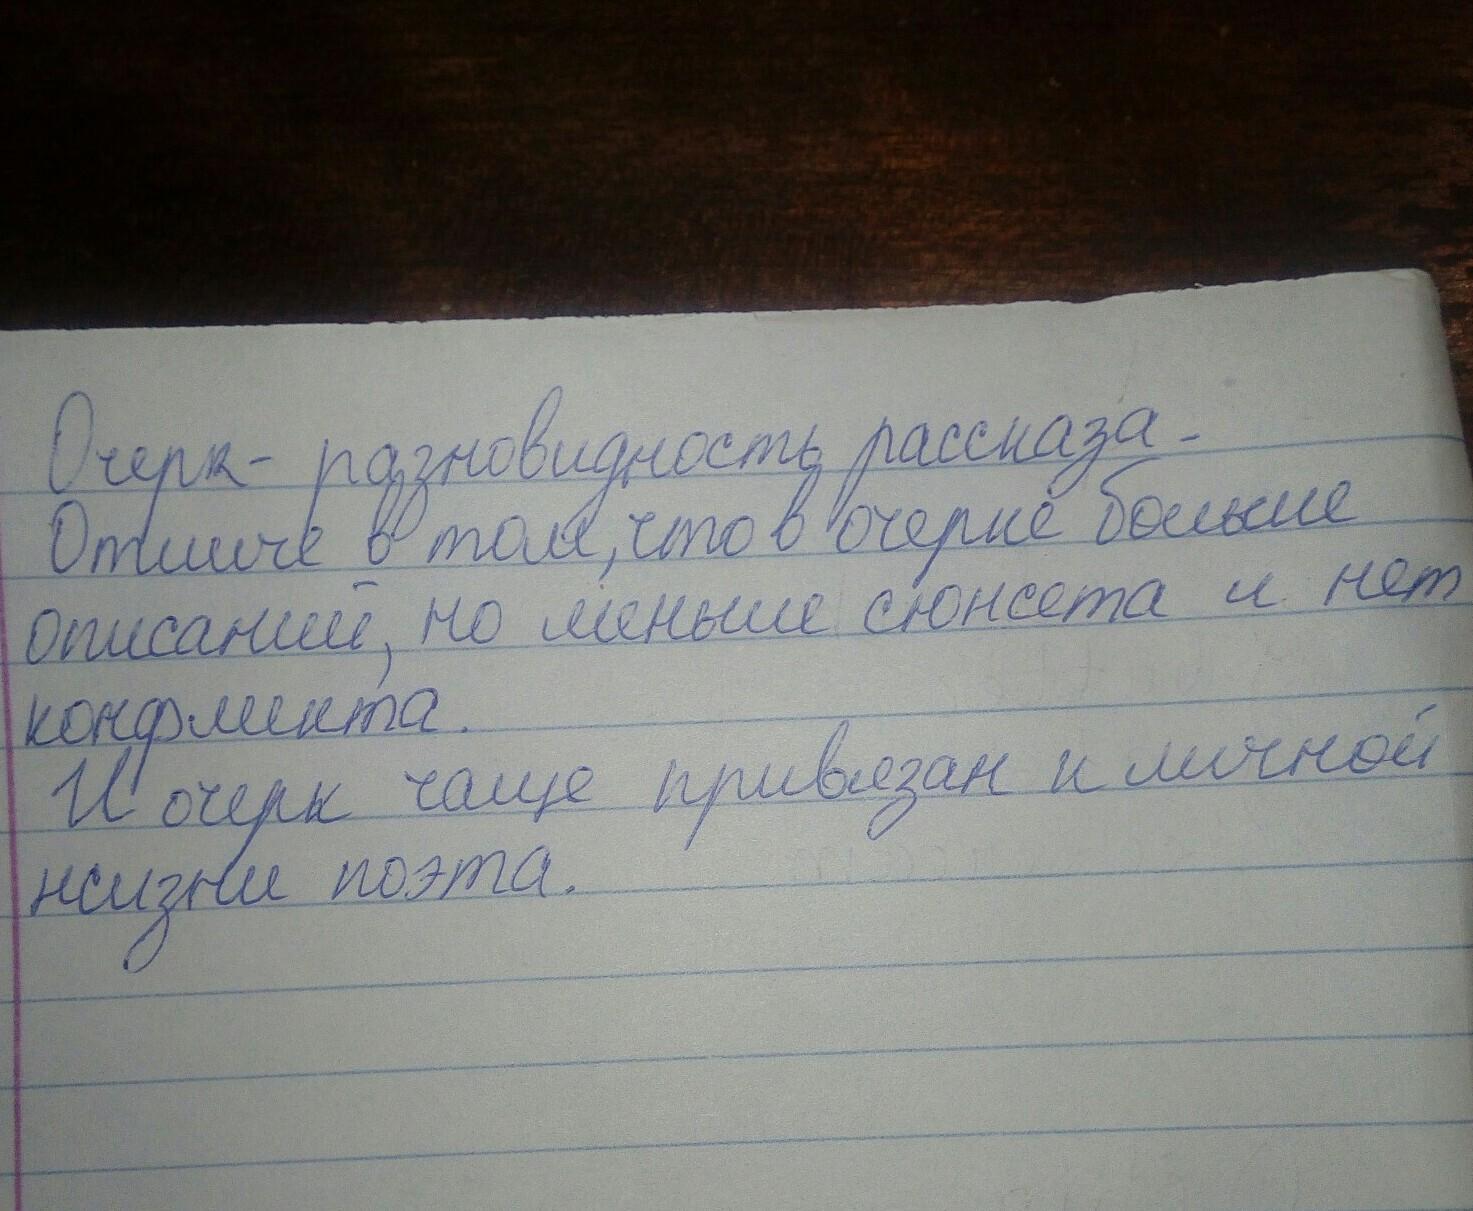 Очерк- разновидность рассказа.
Отличе в том, что в очерке больше
описаний, но меньше сюжета и нет
конфликта.
И очерк чаще привязан к личной
жизни поэта.